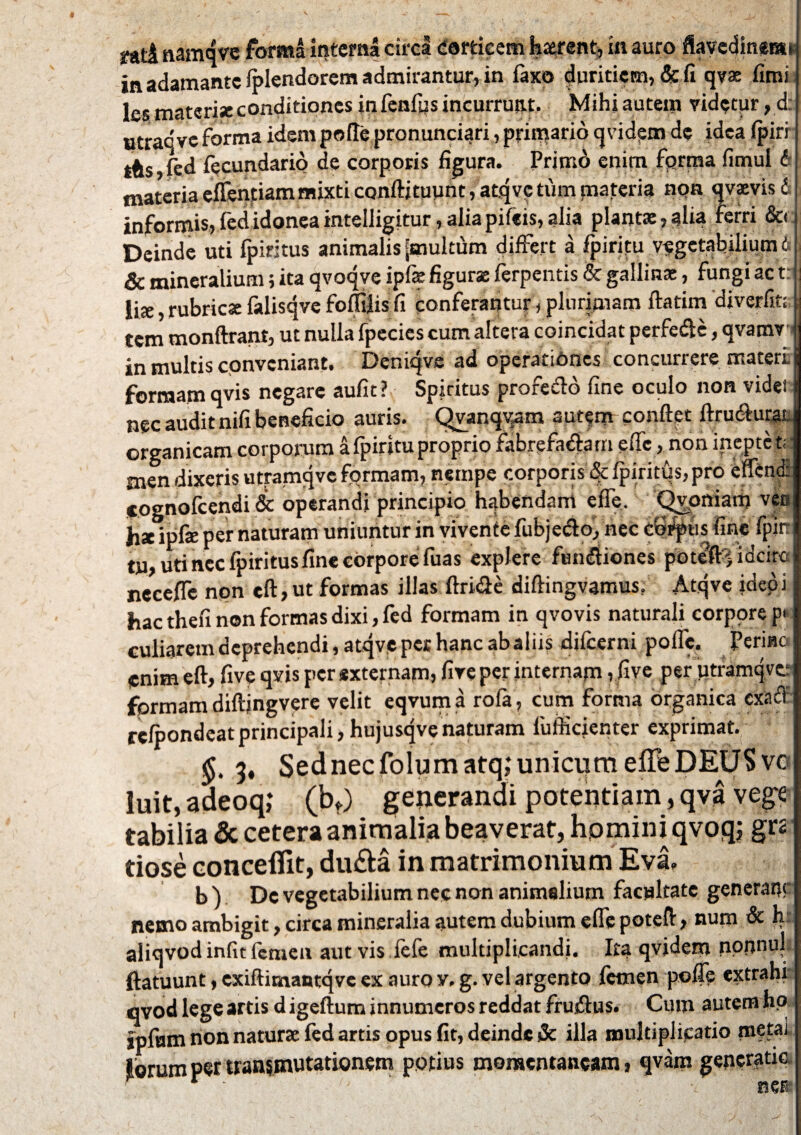 ratâ namqve formâ internâ circâ corticem hærent, in auro flavedinem
in adamante splendorem admirantur, in saxo duritiem, & si qvæ simi
les materiæ conditiones in sensus incurrunt. Mihi autem videtur, d
utraqve forma idem posse pronunciari, primariò qvidem de idea spiri
tûs, sed secundariò de corporis figura. Primò enim forma simul &
materia essentiam mixti constituunt, atqve tùm materia non qvævis &
informis, sed idonea intelligitur, alia piscis, alia plantæ, alia ferri &c
Deinde uti spiritus animalis multùm differt à spiritu vegetabilium &
& mineralium; ita qvoqve ipsæ figuræ serpentis & gallinæ, fungi ac t
liæ, rubricæ salisqve fossilis si conferantur, plurimam statim diversit
tem monstrant, ut nulla species cum altera coincidat perfectè, qvamv
in multis conveniant. Deniqve ad operationes concurrere materi
formam qvis negare ausit? Spiritus profectò sine oculo non videt
nec audit nisi beneficio auris. Qvanqvam autem constet structuram
organicam corporum à spiritu proprio fabrefactam esse, non ineptè t
men dixeris utramqve formam, nempe corporis & spiritûs, pro essendi
cognoscendi & operandi principio habendam esse. Qvoniam ver
hæ ipsæ per naturam uniuntur in vivente subjecto, nec corpus sine spiri
tu, uti nec spiritus sine corpore suas explere functiones potest; idcirc
necesse non est, ut formas illas strictè distingvamus. Atqve ideò i
hac thesi non formas dixi, sed formam in qvovis naturali corpore p
culiarem deprehendi, atqve per hanc ab aliis discerni posse. Perinc
enim est, sive qvis per externam, sive per internam, sive per utramqve
formam distingvere velit eqvum à rosa, cum forma organica exact
respondeat principali, hujusqve naturam sufficienter exprimat.
§. 3. Sed nec solum atq; unicum esse DEUS vo
luit, adeoq; (b,) generandi potentiam, qvâ vege
tabilia & cetera animalia beaverat, homini qvoq; gra
tiosè concessit, ductâ in matrimonium Evâ.
b) De vegetabilium nec non animalium facultate generan
nemo ambigit, circa mineralia autem dubium esse potest, num & h
aliqvod insit semen aut vis sese multiplicandi. Ita qvidem nonnul
statuunt, existimantqve ex auro v. g. vel argento semen posse extrahi
qvod lege artis digestum innumeros reddat fructus. Cum autem ho
ipsum non naturæ sed artis opus sit, deinde & illa multiplicatio metal
lorum per transmutationem potius momentaneam, qvàm generatio
nem